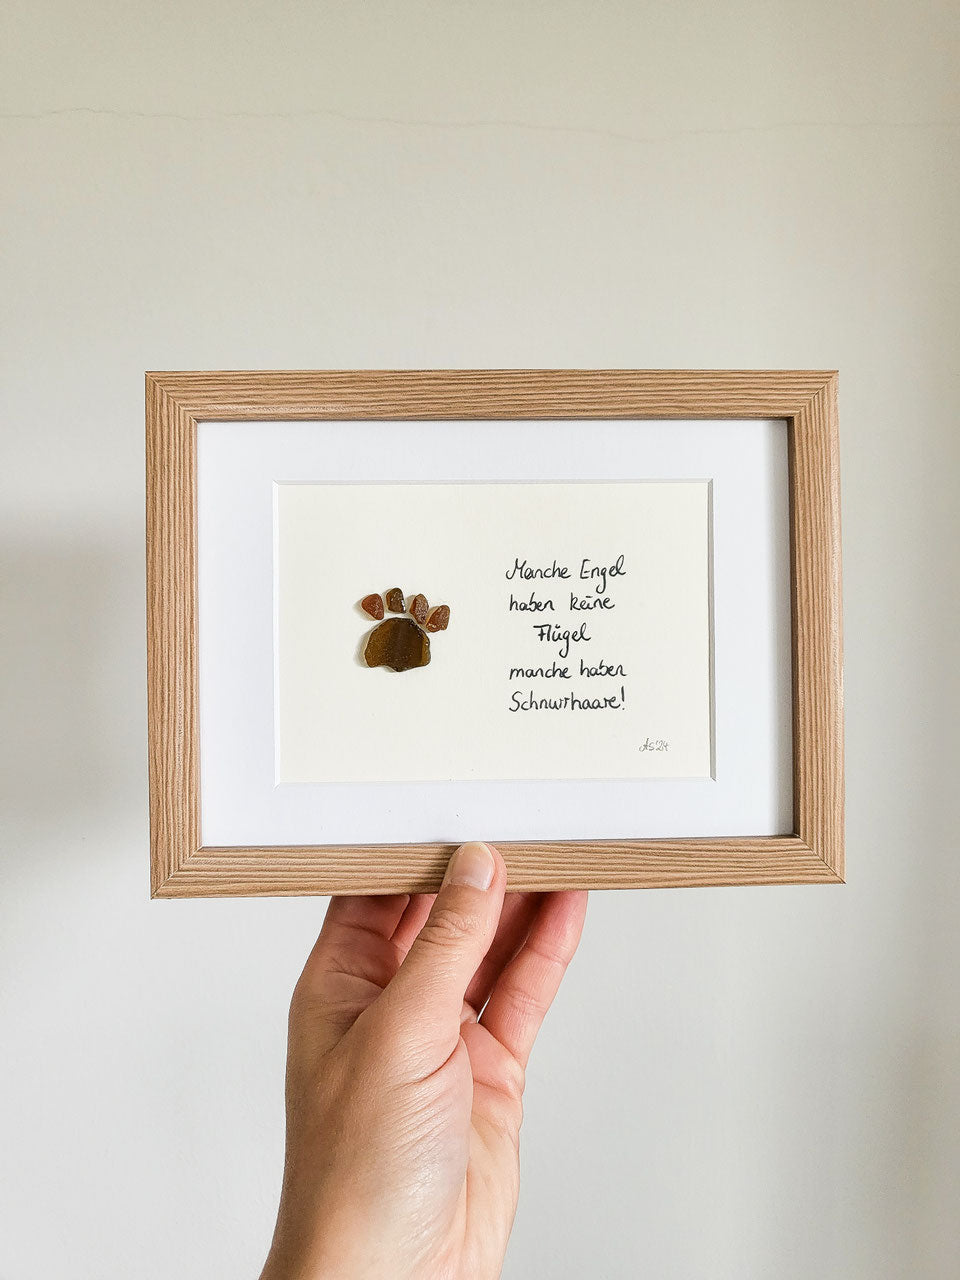 Manche Engel
haben keine
Flügel
manche haben
Schnurrhaare!
AS'24